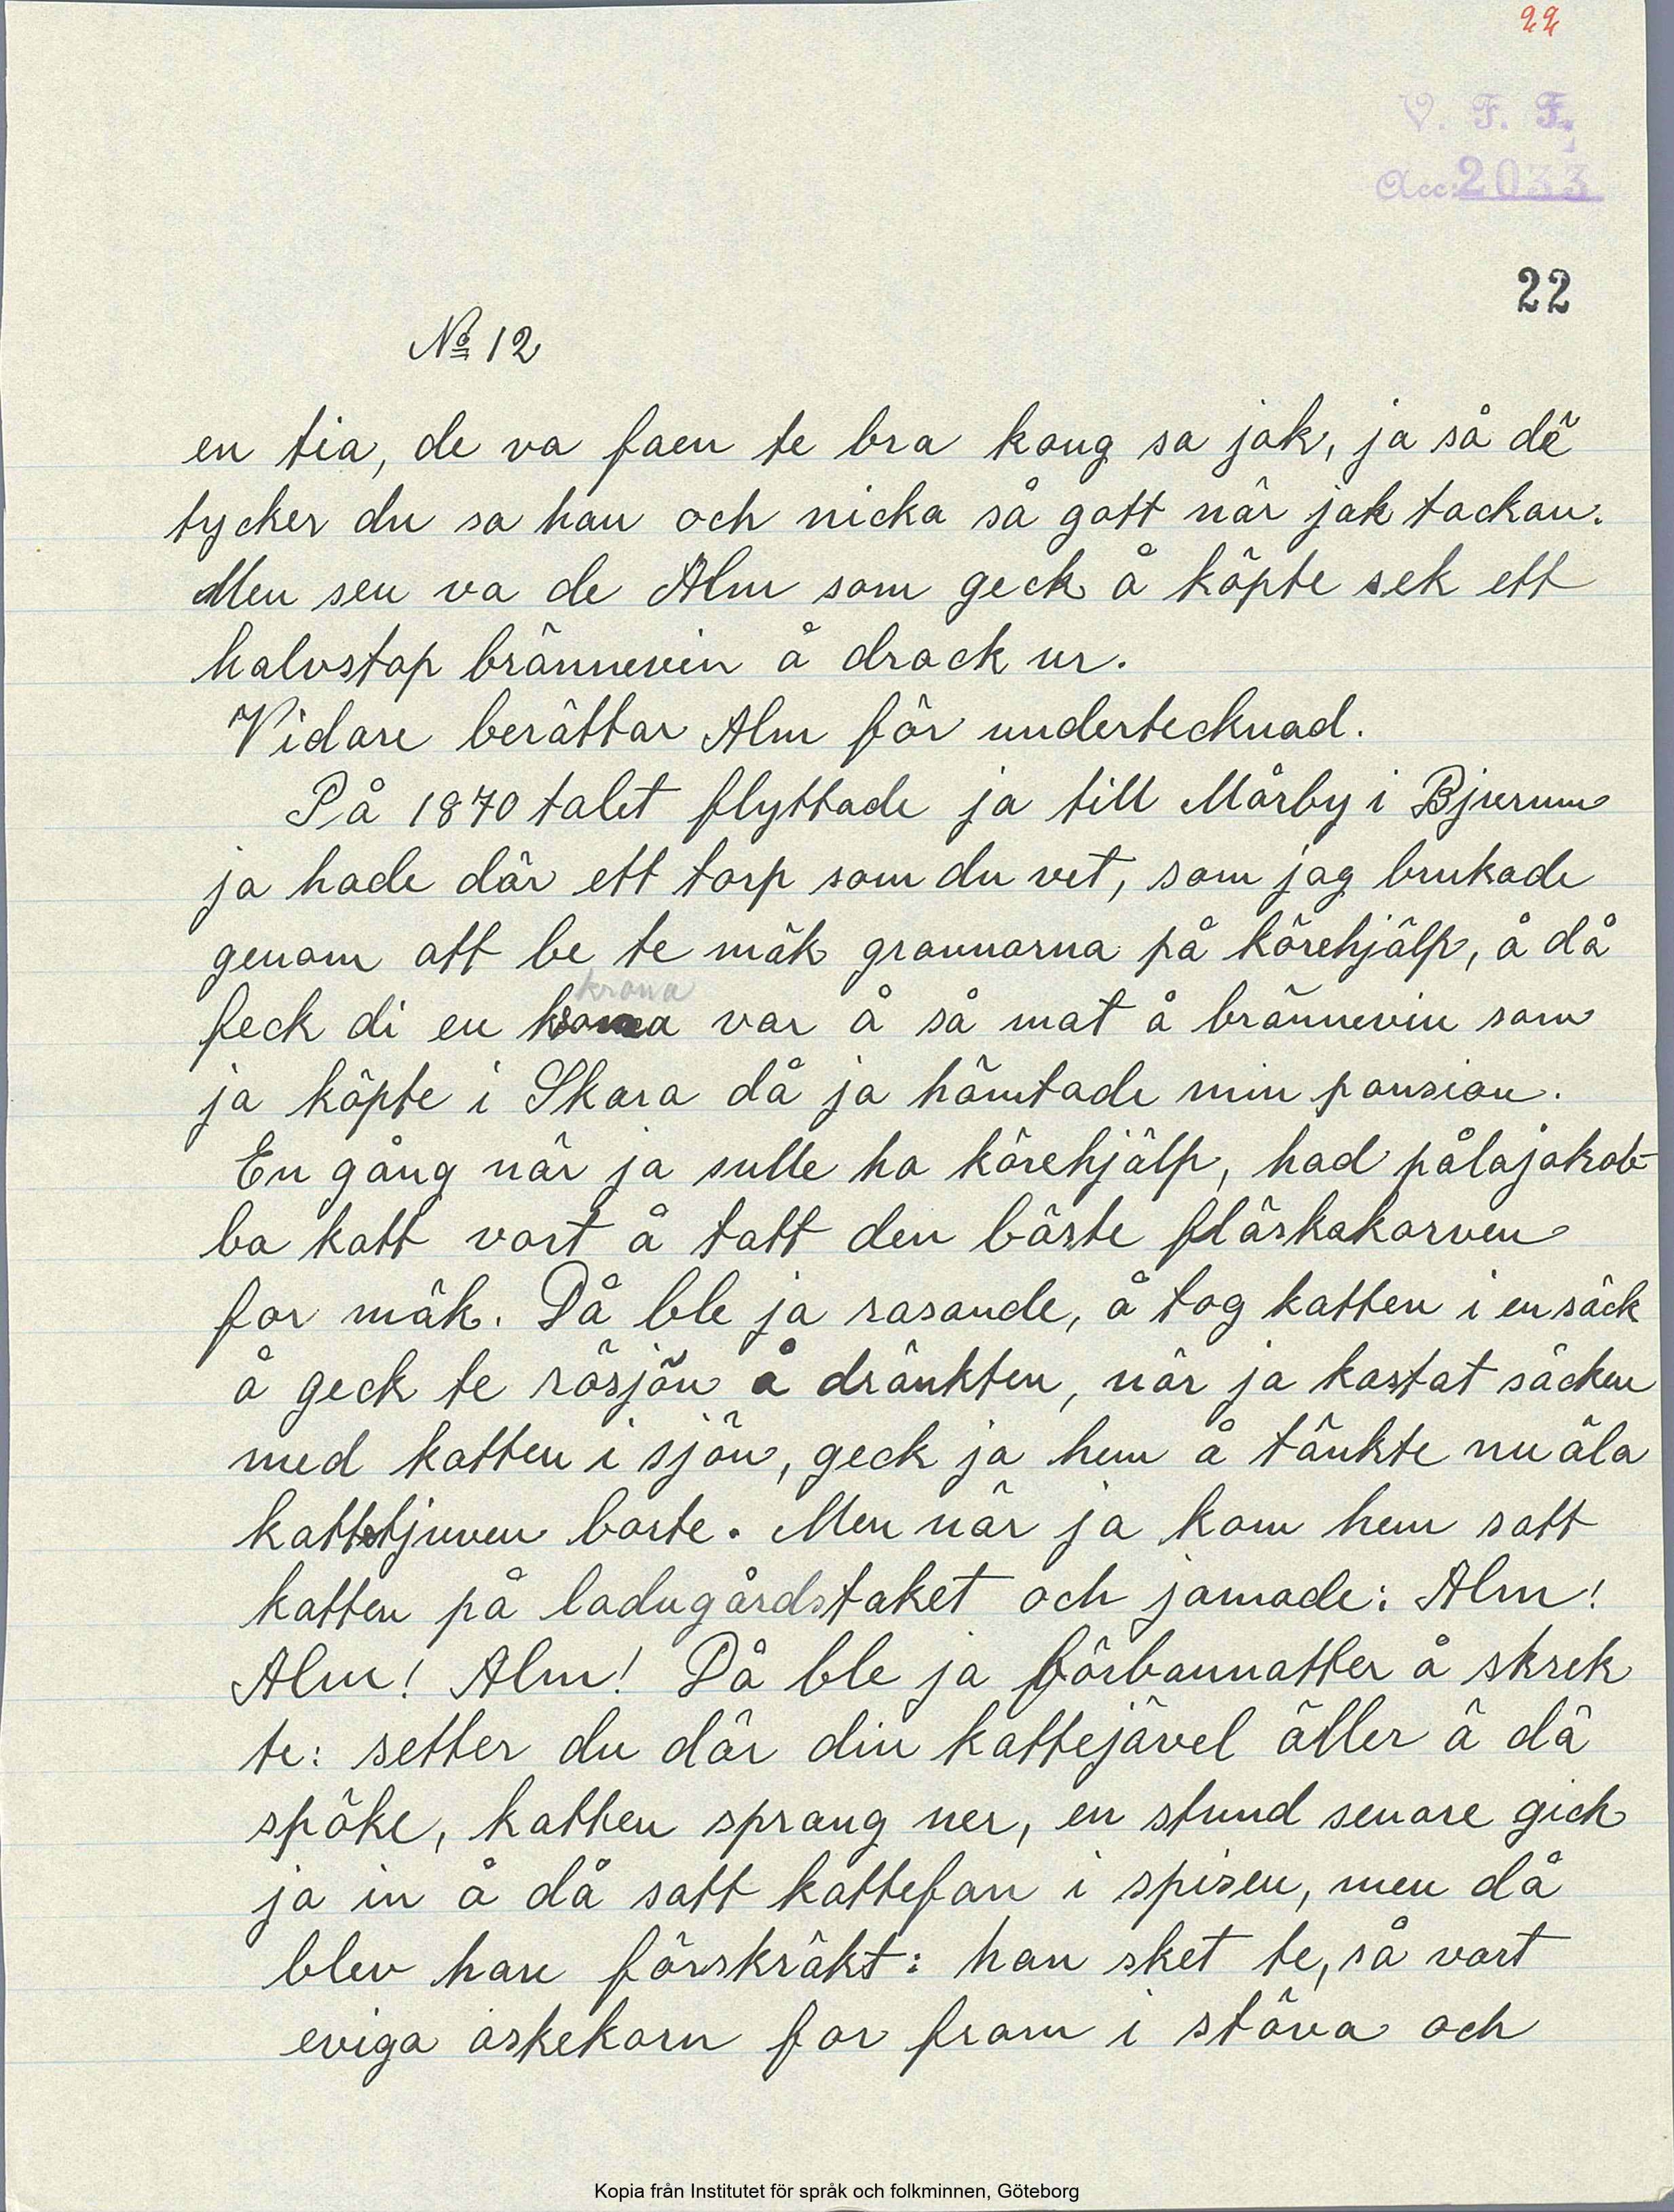 22
V. F. F.
Acc: 2033
22
No 12
en tia, de va faen te bra kong sa jak, ja så dẽ
tycker du sa han och nicka så gott när jak tackan.
Men sen va de Alm som geck å köpte sek ett
halvstop brännevin å drack ur.
Vidare berättar Alm för undertecknad.
På 1870 talet flyttade ja till Mårby i Bjurum
ja hade där ett torp som du vet, som jag brukade
genom att be te mäk grannarna på körehjälp, å då
krona
feck di en krona var å så mat å brännevin som
ja köpte i Skara då ja hämtade min pansion.
En gång när ja sulle ha körehjälp, had pålajakob-
ba katt vort å tatt den bäste fläskakorven
for mäk. Då ble ja rasande, å tog katten i en säck
å geck te rösjön å dränkten, när ja kastat säcken
med katten i sjön, geck ja hem å tänkte nu äla
kattetjuven borte. Men när ja kom hem satt
katten på ladugårdstaket och jamade: Alm!
Alm! Alm! Då ble ja förbannatter å skrek
te: setter du där din kattejävel äller ä dä
spöke, katten sprang ner, en stund senare gick
ja in å då satt kattefan i spisen, men då
blev han förskräkt: han sket te, så vart
eviga askekorn for fram i stöva och
Kopia från Institutet för språk och folkminnen, Göteborg